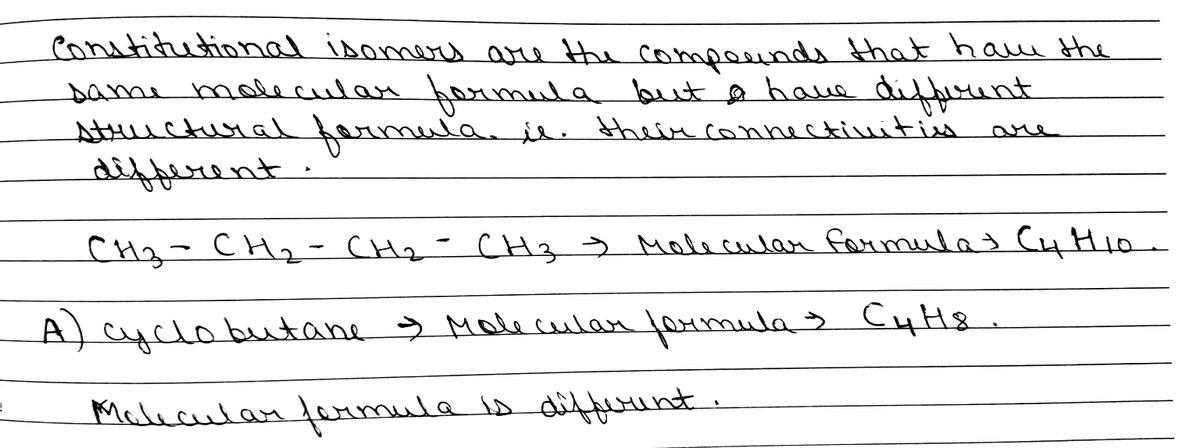 Constitutional isomers are the compounds that have the
same molecular formula but have different
structural formula. ie. their connectivities are
different.
CH3 - CH2 - CH2 - CH3 → Molecular formula → C4H10.
A) cyclobutane → Molecular formula → C4H8.
Molecular formula is different.